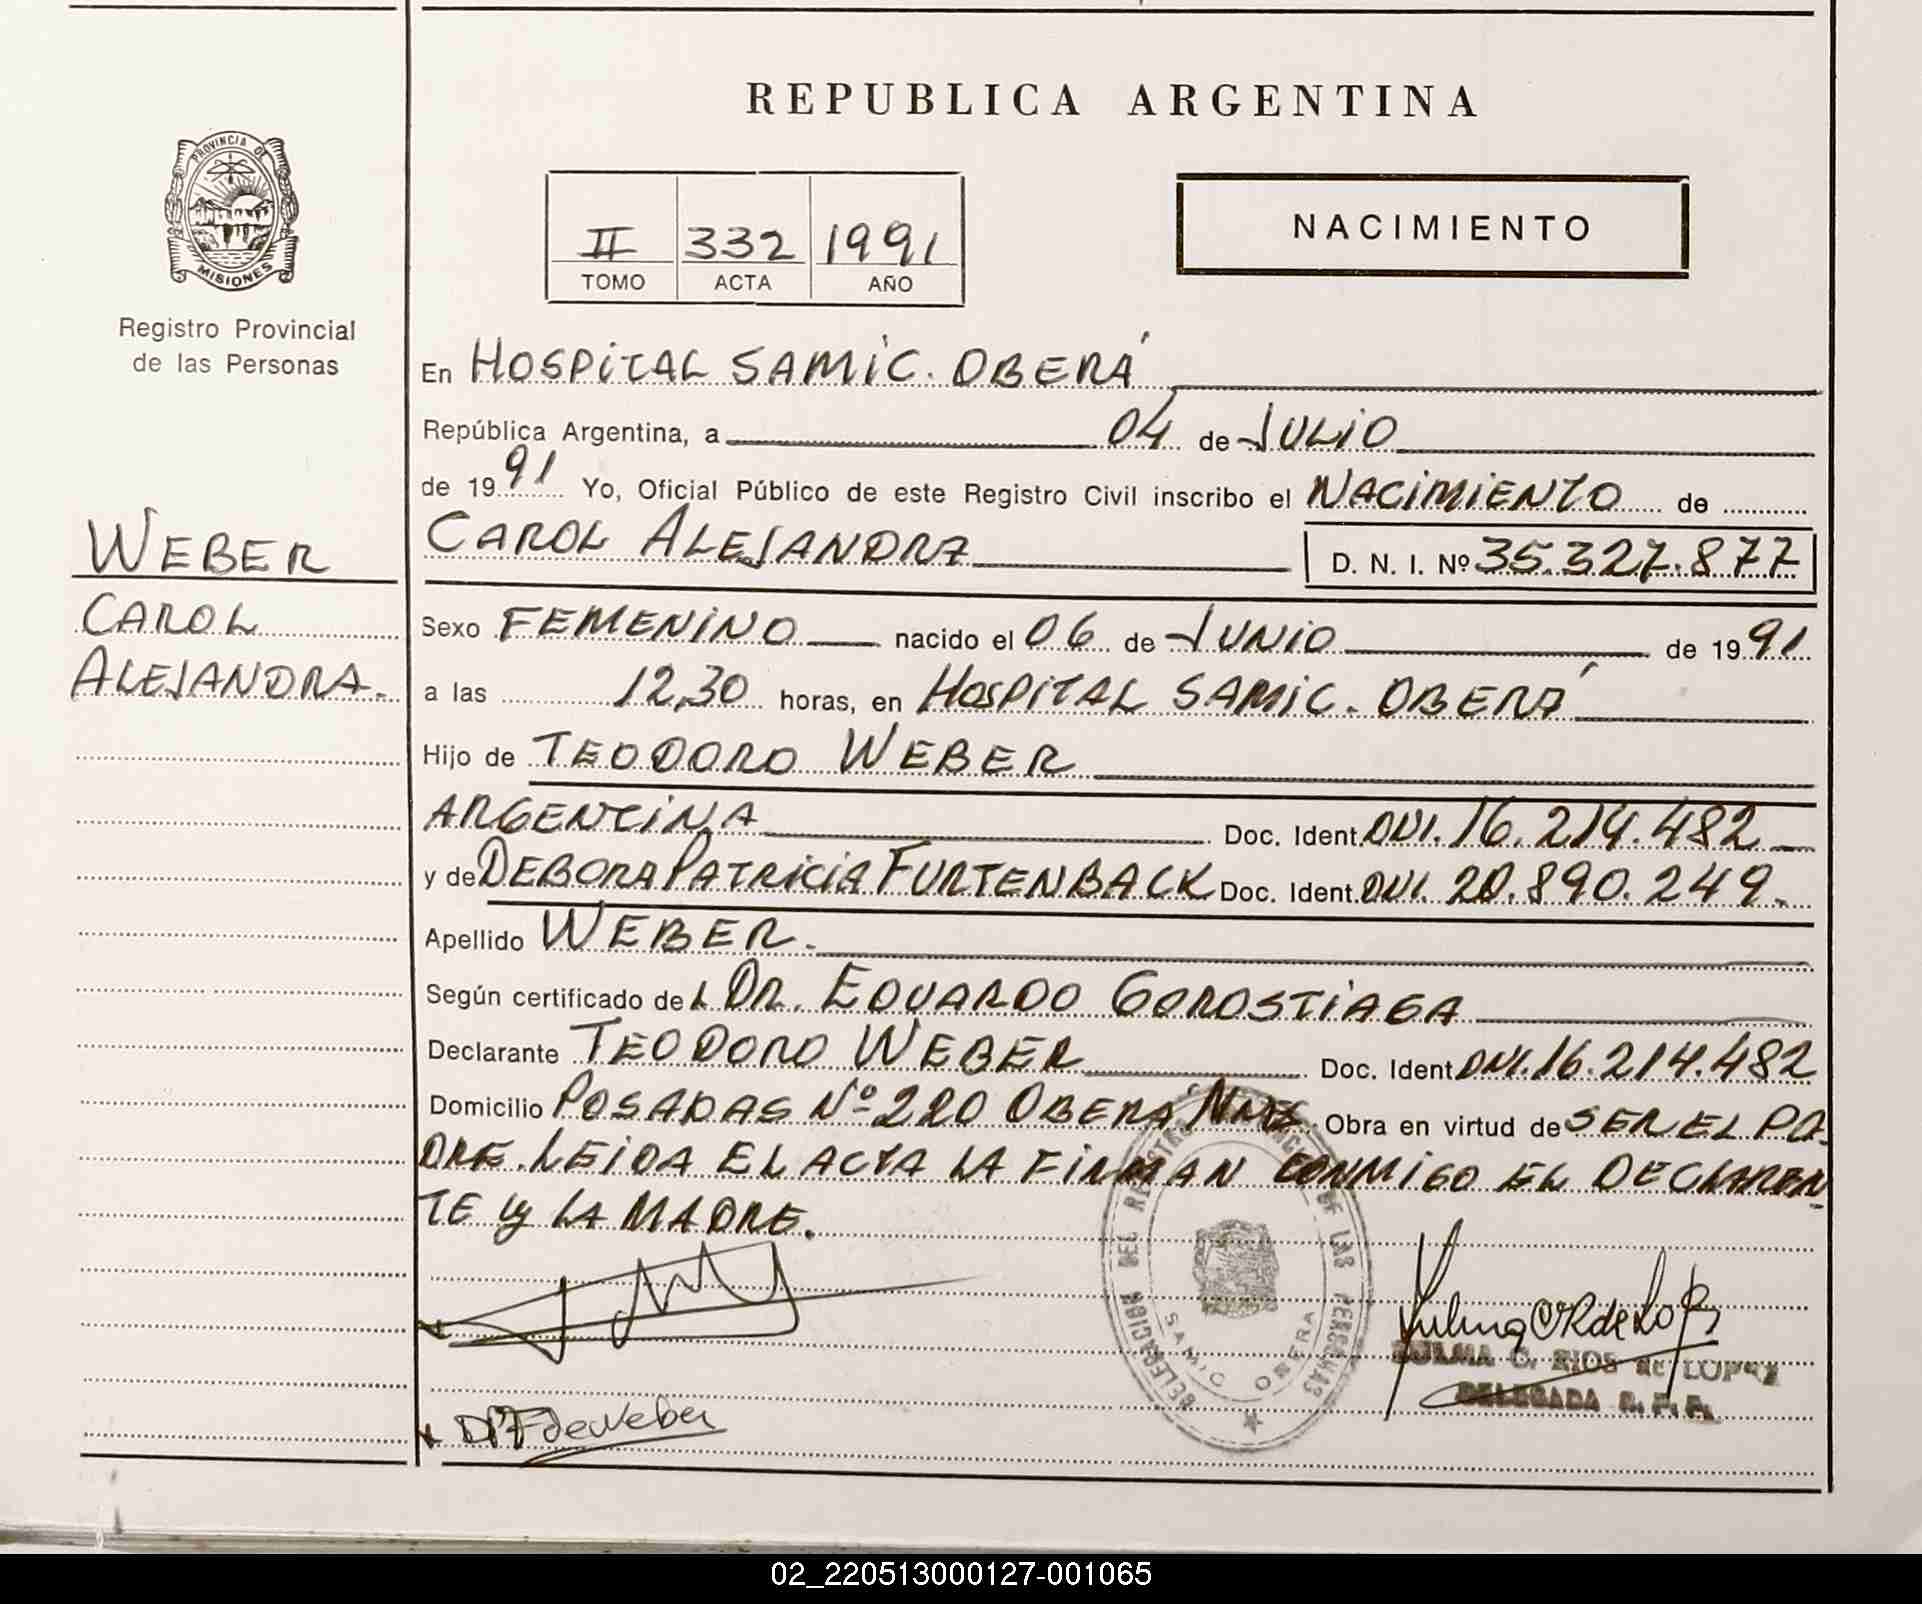 REPUBLICA ARGENTINA
PROVINCIA DE
MISIONES
Registro Provincial
de las Personas
II 332 1991
TOMO ACTA AÑO
NACIMIENTO
WEBER
CAROL
ALEJANDRA.
En HOSPITAL SAMIC. OBERÁ
República Argentina, a 04 de JULIO
de 1991 Yo, Oficial Público de este Registro Civil inscribo el NACIMIENTO de
CAROL ALEJANDRA D. N. I. Nº 35.327.877
Sexo FEMENINO nacido el 06 de JUNIO de 1991
a las 12,30 horas, en HOSPITAL SAMIC. OBERÁ
Hijo de TEODORO WEBER
ARGENTINA Doc. Ident. DNI. 16.214.482
y de DEBORA PATRICIA FURTENBACK Doc. Ident. DNI. 20.890.249.
Apellido WEBER.
Según certificado del DR. EDUARDO GOROSTIAGA
Declarante TEODORO WEBER Doc. Ident DNI. 16.214.482
Domicilio POSADAS Nº 220 OBERA Mnes. Obra en virtud de SER EL PA-
DRE. LEIDA EL ACTA LA FIRMAN CONMIGO EL DECLARAN
TE y LA MADRE.
DELEGACION DEL REGISTRO PROVINCIAL DE LAS PERSONAS
SAMIC OBERA
Zulma C R de López
ZULMA C. RIOS de LOPEZ
DELEGADA R. P. P.
DPF de Weber
02_220513000127-001065